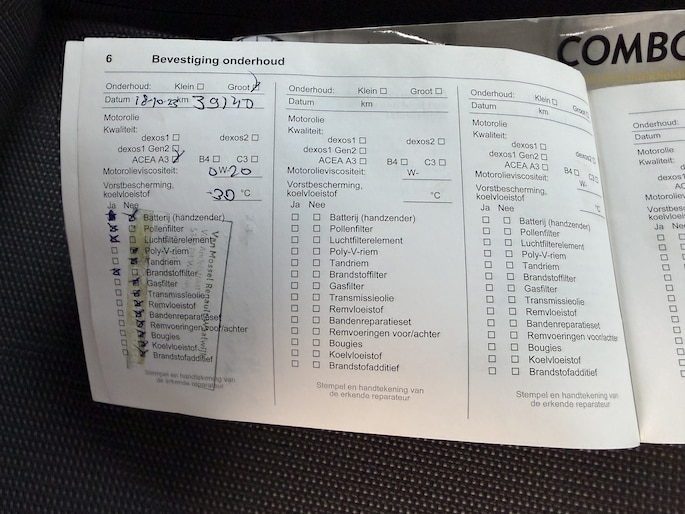 COMBO
6 Bevestiging onderhoud
Onderhoud: Klein ☐ Groot ☑
Datum 18-10-23 km 39140
Motorolie
Kwaliteit:
dexos1 ☐ dexos2 ☐
dexos1 Gen2 ☐
ACEA A3 ☑ B4 ☐ C3 ☐
Motorolieviscositeit: 0W-20
Vorstbescherming,
koelvloeistof -30 °C
Ja Nee
Batterij (handzender)
Pollenfilter
Luchtfilterelement
Poly-V-riem
Tandriem
Brandstoffilter
Gasfilter
Transmissieolie
Remvloeistof
Bandenreparatieset
Remvoeringen voor/achter
Bougies
Koelvloeistof
Brandstofadditief
Van Mossel Renault
Stempel en handtekening van
de erkende reparateur
Onderhoud: Klein ☐ Groot ☐
Datum km
Motorolie
Kwaliteit:
dexos1 ☐ dexos2 ☐
dexos1 Gen2 ☐
ACEA A3 ☐ B4 ☐ C3 ☐
Motorolieviscositeit: W-
Vorstbescherming,
koelvloeistof °C
Ja Nee
☐ ☐ Batterij (handzender)
☐ ☐ Pollenfilter
☐ ☐ Luchtfilterelement
☐ ☐ Poly-V-riem
☐ ☐ Tandriem
☐ ☐ Brandstoffilter
☐ ☐ Gasfilter
☐ ☐ Transmissieolie
☐ ☐ Remvloeistof
☐ ☐ Bandenreparatieset
☐ ☐ Remvoeringen voor/achter
☐ ☐ Bougies
☐ ☐ Koelvloeistof
☐ ☐ Brandstofadditief
Stempel en handtekening van
de erkende reparateur
Onderhoud: Klein ☐ Groot ☐
Datum km
Motorolie
Kwaliteit:
dexos1 ☐ dexos2 ☐
dexos1 Gen2 ☐
ACEA A3 ☐ B4 ☐ C3 ☐
Motorolieviscositeit: W-
Vorstbescherming,
koelvloeistof °C
Ja Nee
☐ ☐ Batterij (handzender)
☐ ☐ Pollenfilter
☐ ☐ Luchtfilterelement
☐ ☐ Poly-V-riem
☐ ☐ Tandriem
☐ ☐ Brandstoffilter
☐ ☐ Gasfilter
☐ ☐ Transmissieolie
☐ ☐ Remvloeistof
☐ ☐ Bandenreparatieset
☐ ☐ Remvoeringen voor/achter
☐ ☐ Bougies
☐ ☐ Koelvloeistof
☐ ☐ Brandstofadditief
Stempel en handtekening van
de erkende reparateur
Onderhoud:
Datum
Motorolie
Kwaliteit:
Ja